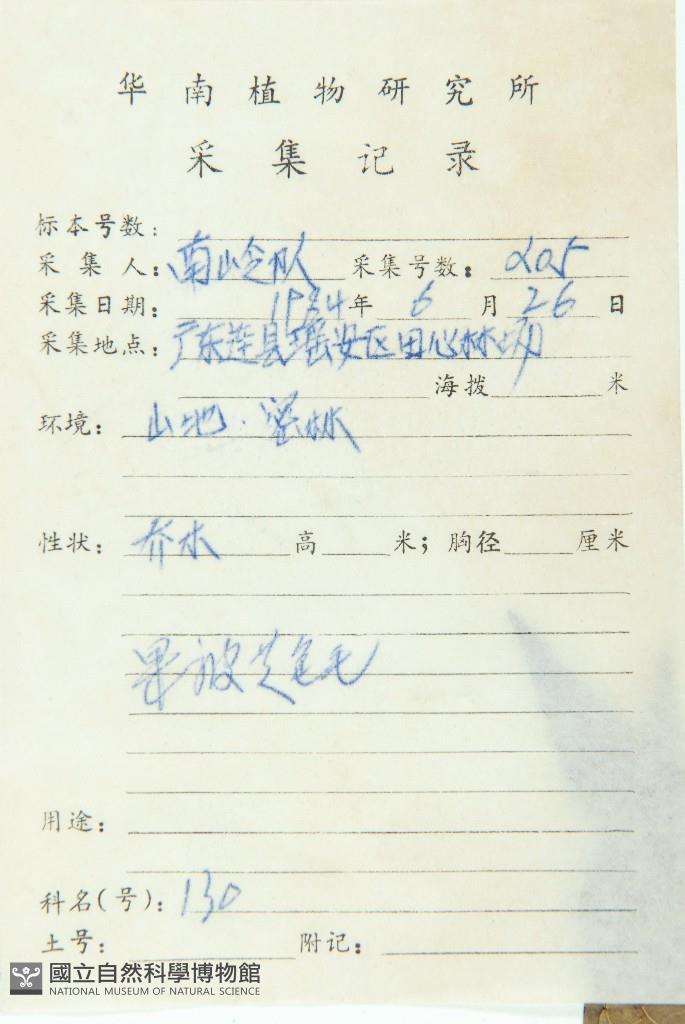 华南植物研究所
采集记录
标本号数:
采集人: 南岭队 采集号数: 205
采集日期: 1984年 6月 26日
采集地点: 广东连县瑶安区田心林场
海拨 米
环境: 山地.密林
性状: 乔木 高 米; 胸径 厘米
果被黄色毛
用途:
科名(号): 130
土号: 附记:
國立自然科學博物館
NATIONAL MUSEUM OF NATURAL SCIENCE